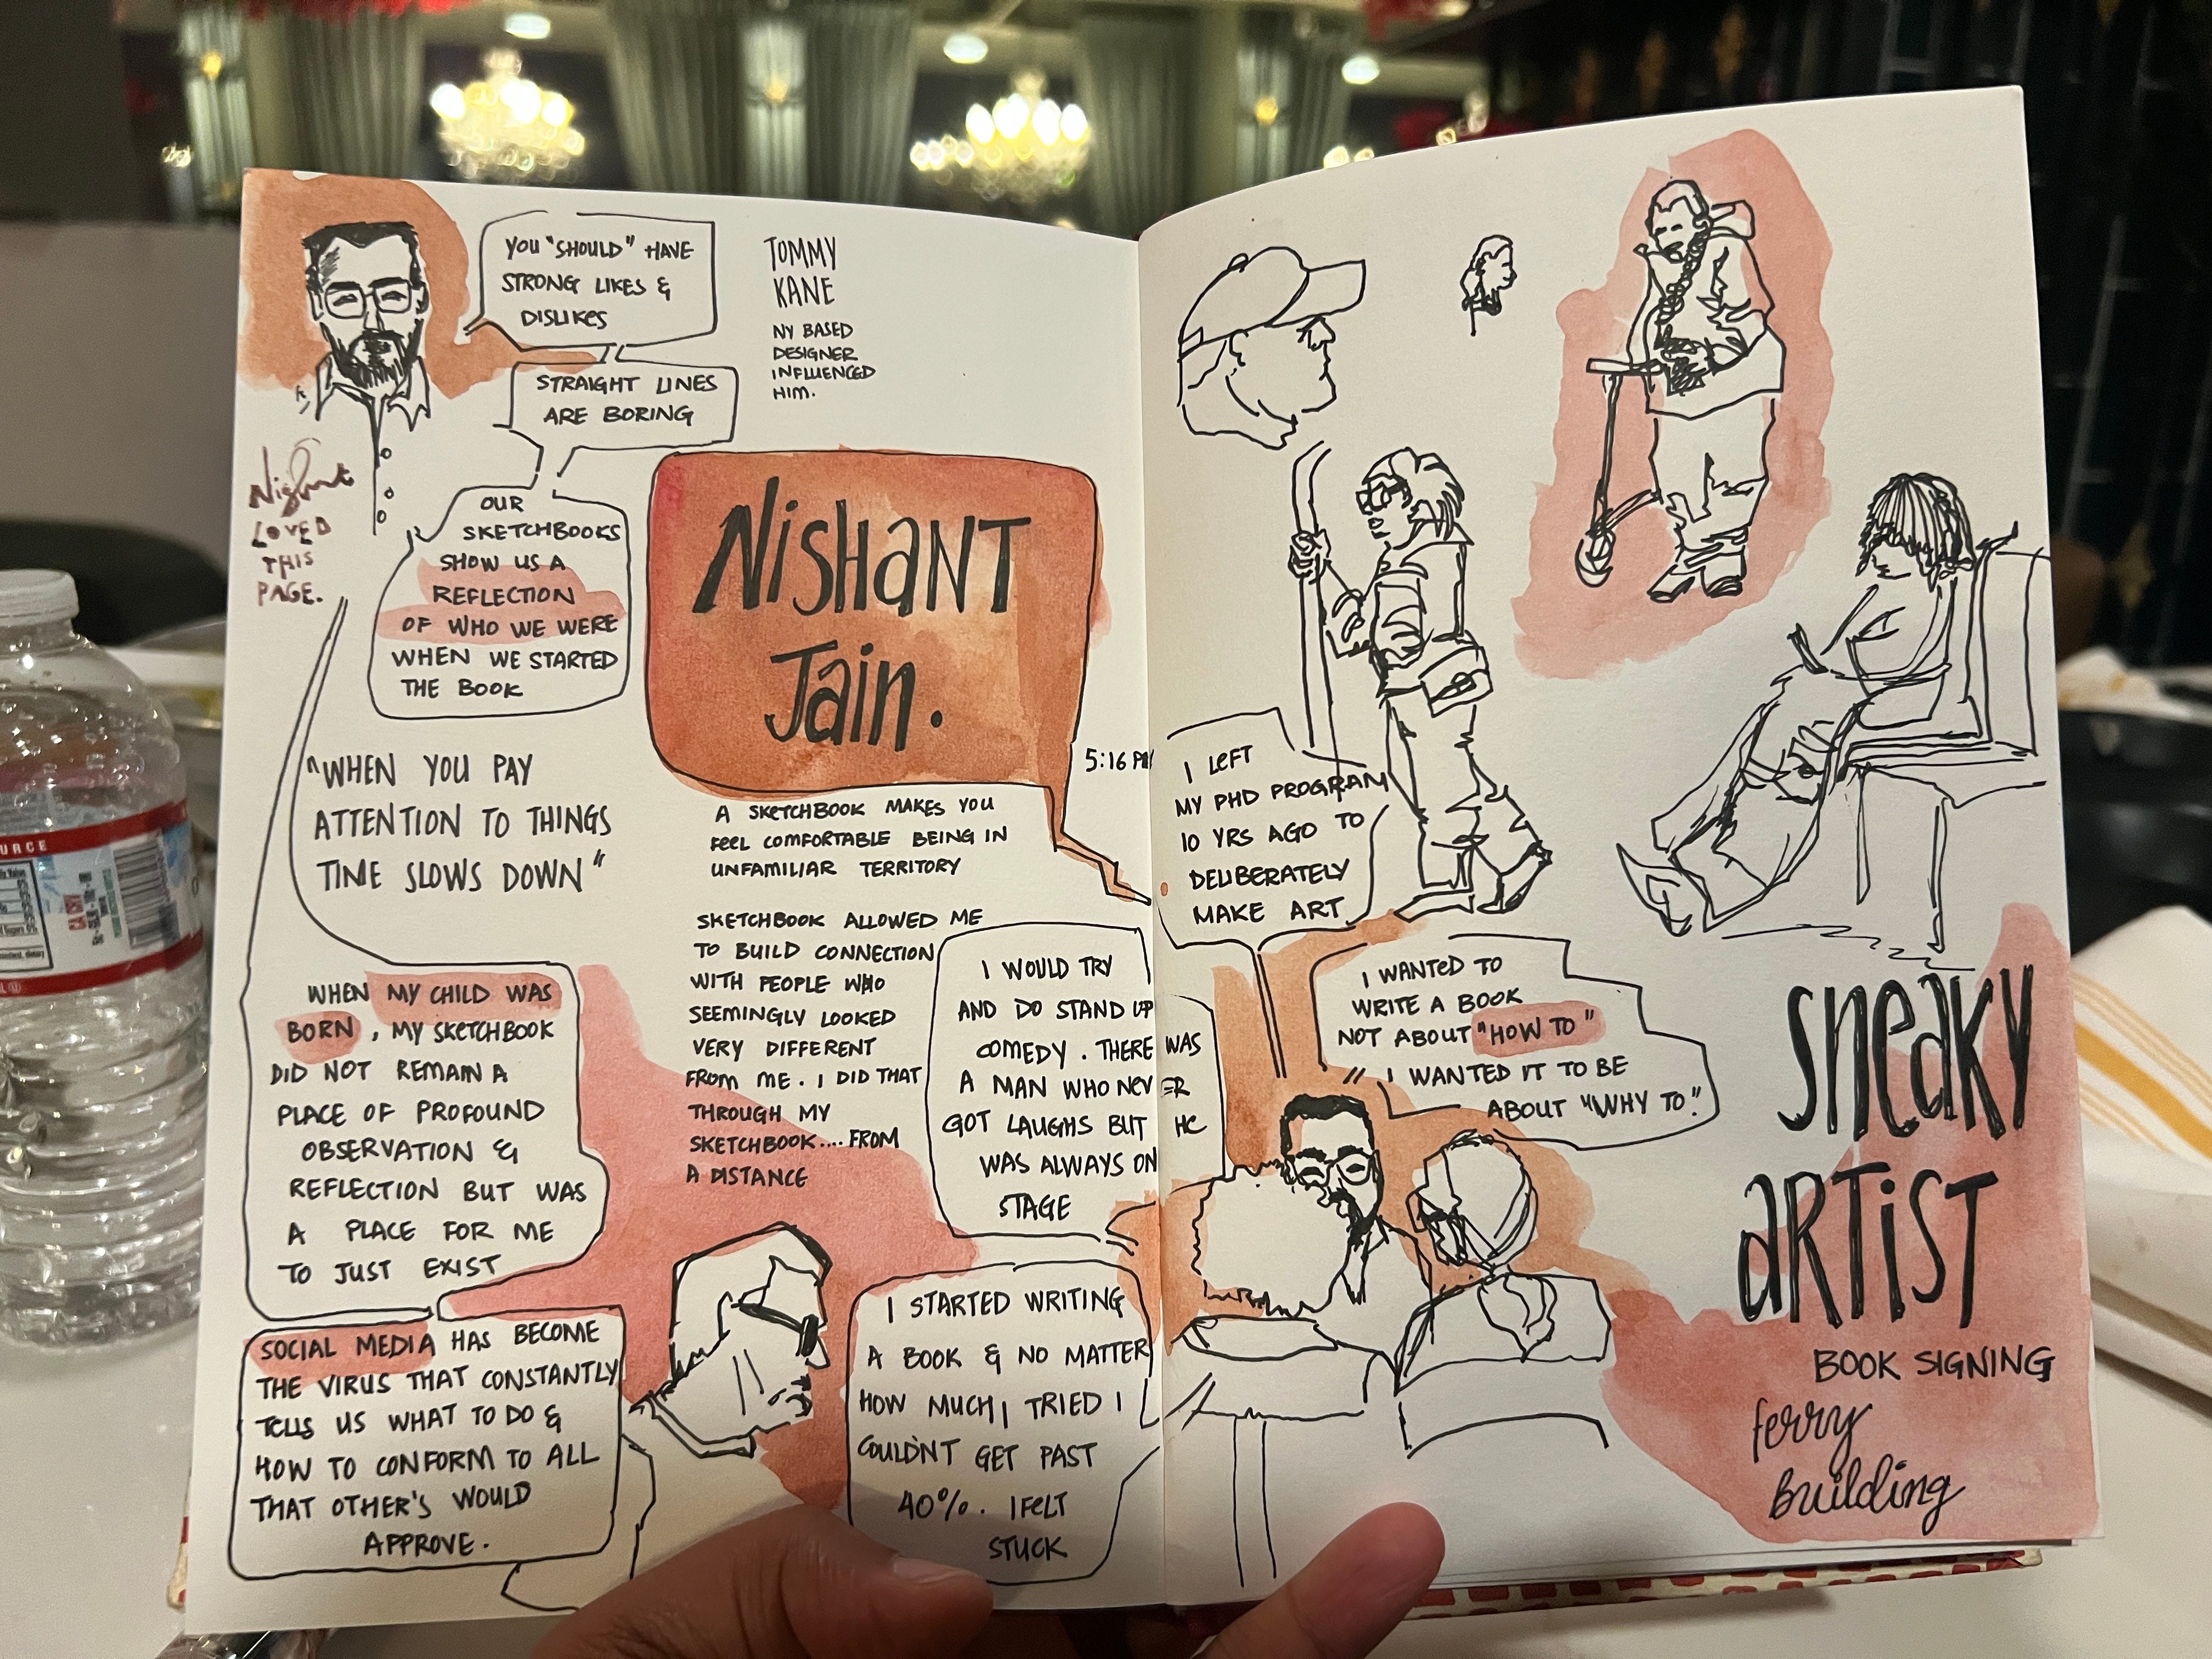 YOU "SHOULD" HAVE
STRONG LIKES &
DISLIKES
STRAIGHT LINES
ARE BORING
TOMMY
KANE
NY BASED
DESIGNER
INFLUENCED
HIM.
Nishant
LOVED
THIS
PAGE.
OUR
SKETCHBOOKS
SHOW US A
REFLECTION
OF WHO WE WERE
WHEN WE STARTED
THE BOOK
NISHANT
Jain.
5:16 PM
"WHEN YOU PAY
ATTENTION TO THINGS
TIME SLOWS DOWN"
A SKETCHBOOK MAKES YOU
FEEL COMFORTABLE BEING IN
UNFAMILIAR TERRITORY
SKETCHBOOK ALLOWED ME
TO BUILD CONNECTION
WITH PEOPLE WHO
SEEMINGLY LOOKED
VERY DIFFERENT
FROM ME. I DID THAT
THROUGH MY
SKETCHBOOK.... FROM
A DISTANCE
WHEN MY CHILD WAS
BORN, MY SKETCHBOOK
DID NOT REMAIN A
PLACE OF PROFOUND
OBSERVATION &
REFLECTION BUT WAS
A PLACE FOR ME
TO JUST EXIST
SOCIAL MEDIA HAS BECOME
THE VIRUS THAT CONSTANTLY
TELLS US WHAT TO DO &
HOW TO CONFORM TO ALL
THAT OTHER'S WOULD
APPROVE.
I WOULD TRY
AND DO STAND UP
COMEDY. THERE WAS
A MAN WHO NEVER
GOT LAUGHS BUT HE
WAS ALWAYS ON
STAGE
I STARTED WRITING
A BOOK & NO MATTER
HOW MUCH I TRIED I
COULDN'T GET PAST
40%. I FELT
STUCK
I LEFT
MY PHD PROGRAM
10 YRS AGO TO
DELIBERATELY
MAKE ART
I WANTED TO
WRITE A BOOK
NOT ABOUT "HOW TO"
I WANTED IT TO BE
ABOUT "WHY TO".
SNEAKY
ARTIST
BOOK SIGNING
ferry
Building
URCE